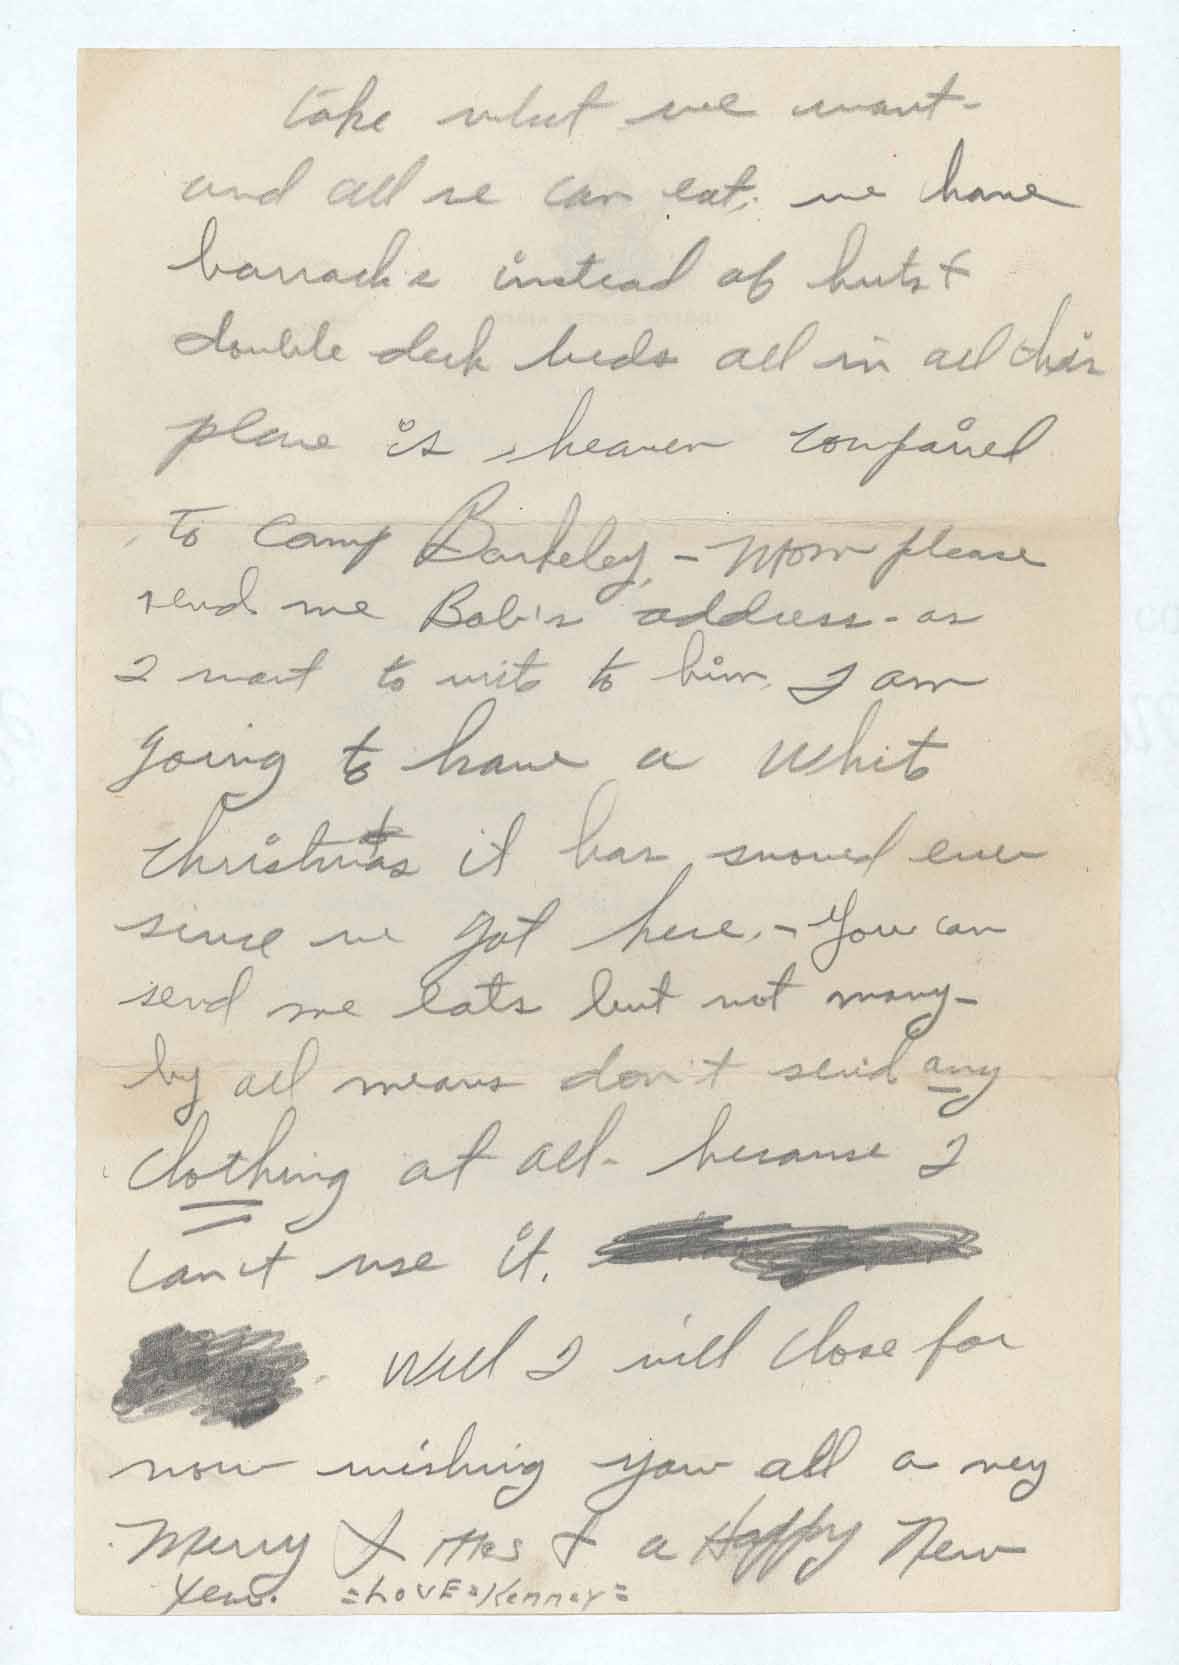 take what we want -
and all we can eat, we have
barracks instead of huts +
double deck beds all in all this
place is heaven compared
to Camp Barkeley, - Mom please
send me Bob's address - as
I want to write to him, I am
going to have a white
Christmas it has snowed ever
since we got here. - You can
send me eats but not many -
by all means don't send any
clothing at all - because I
can't use it.
Well I will close for
now wishing you all a very
Merry X mas + a Happy New
Year. = LOVE = Kenney =